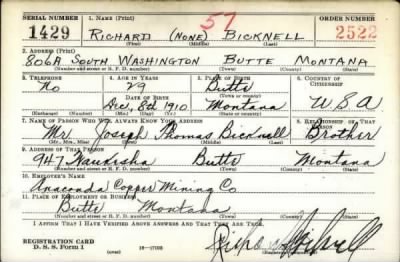 SERIAL NUMBER 1. NAME (Print) 57 ORDER NUMBER
1429 RICHARD (NONE) BICKNELL 2522
(First) (Middle) (Last)
2. ADDRESS (Print)
806A SOUTH WASHINGTON BUTTE MONTANA
(Number and street or R. F. D. number) (Town) (County) (State)
3. TELEPHONE 4. AGE IN YEARS 5. PLACE OF BIRTH 6. COUNTRY OF CITIZENSHIP
No 29 Butte
DATE OF BIRTH (Town or county)
Dec, 8th 1910 Montana U.S.A
(Exchange) (Number) (Mo.) (Day) (Yr.) (State or country)
7. NAME OF PERSON WHO WILL ALWAYS KNOW YOUR ADDRESS 8. RELATIONSHIP OF THAT PERSON
Mr. Joseph Thomas Bicknell Brother
(Mr., Mrs., Miss) (First) (Middle) (Last)
9. ADDRESS OF THAT PERSON
947 Butte Montana
(Number and street or R. F. D. number) (Town) (County) (State)
10. EMPLOYER'S NAME
Anaconda Copper Mining Co
11. PLACE OF EMPLOYMENT OR BUSINESS
Butte Montana
(Number and street or R. F. D. number) (Town) (County) (State)
I AFFIRM THAT I HAVE VERIFIED ABOVE ANSWERS AND THAT THEY ARE TRUE.
REGISTRATION CARD
D. S. S. Form 1